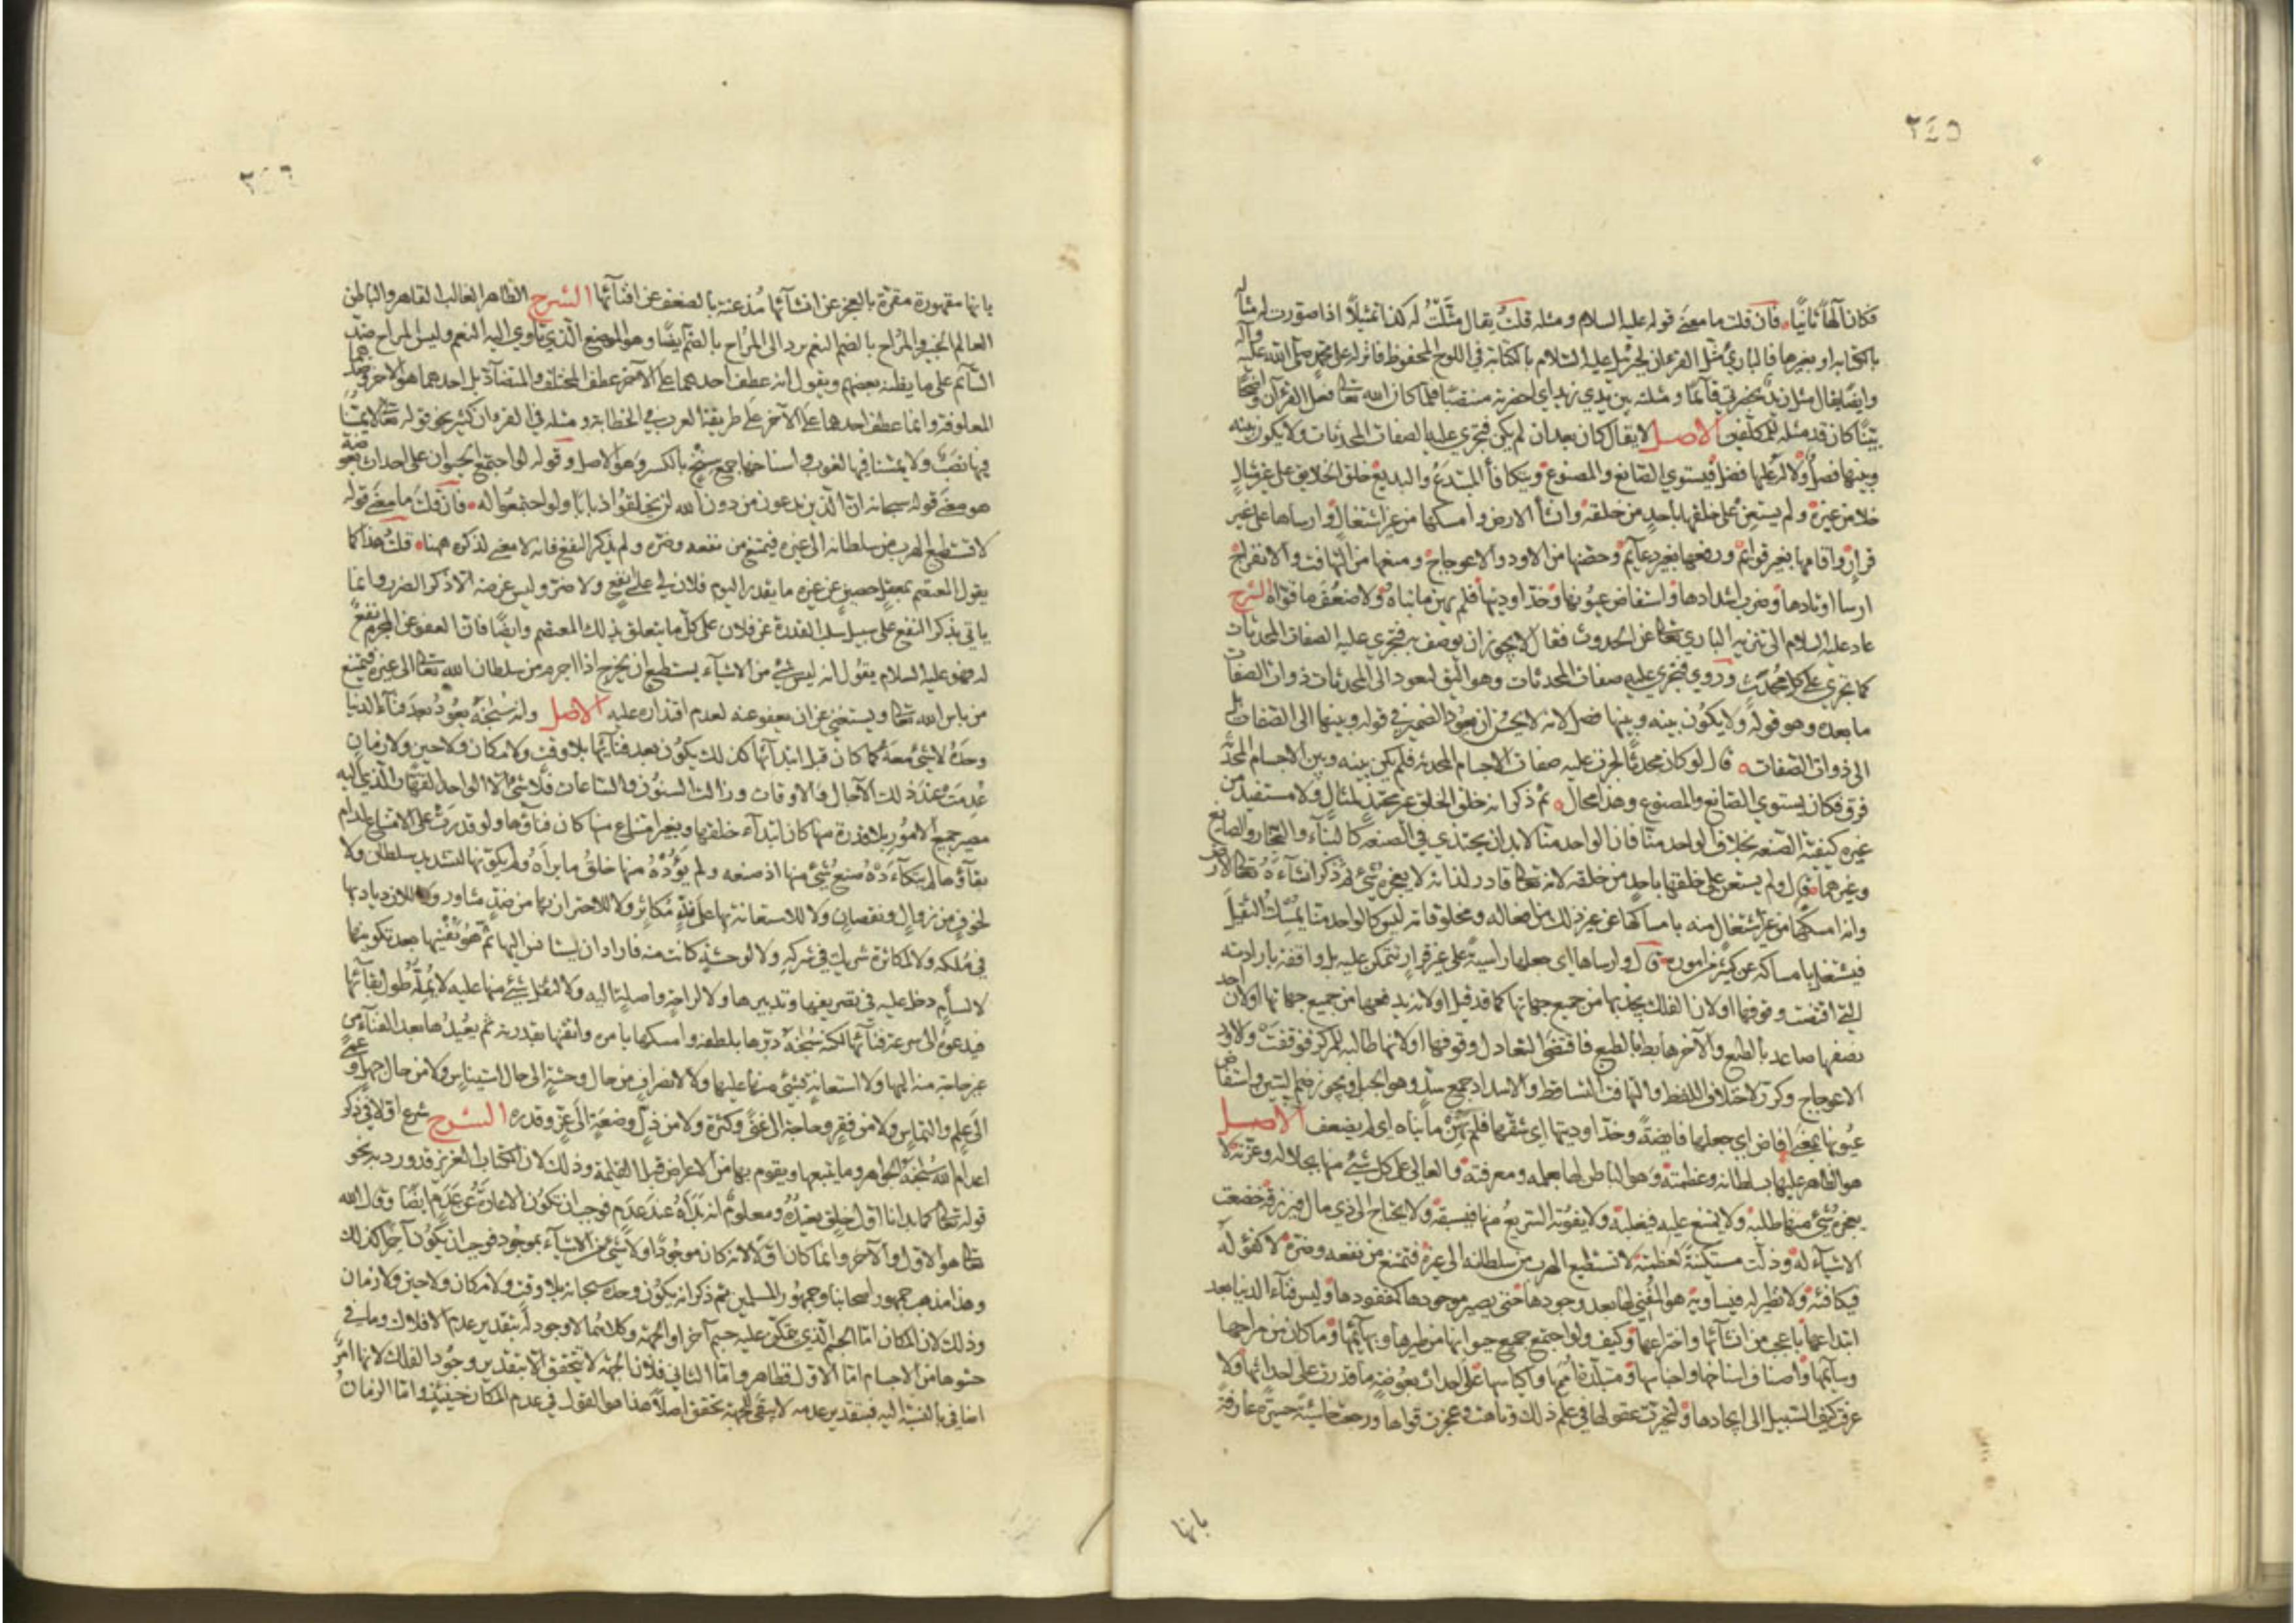 ٢٤٥
فكان آلهاً ثانيًا، فان قلت ما معنى قوله عليه السلام ومثله قلت يقال مثّلتُ له كذا تمثيلاً اذا صورت له مثاله
بالكتابه او بغيرها فالباري مثل القرءان لجبرئيل عليه السلام بالكتابة في اللوح المحفوظ فانزله على محمد صلى الله عليه وآله
وايضًا يقال مثل زيد بحضرتي قائمًا ومثلته بين يدي زيد اي احضرته منتصبًا فلما كان الله تعالى فعل القرآن واضحًا
بيّنًا كان قد مثله للمكلفين الاصل لا يقال كان بعد ان لم يكن فتجري عليه الصفات المحدثات ولا يكون بينه
وبينها فصلٌ ولا له عليها فضل فيستوي الصانع والمصنوع ويتكافأ المبتدع والبديع خلق الخلايق على غير مثالٍ
خلا من غيره ولم يستعن على خلقها باحدٍ من خلقه وانشأ الارض وامسكها من غير اشتغال وارساها على غير
قرارٍ واقامها بغير قوائم ورفعها بغير دعائم وحصّنها من الاود والاعوجاج ومنعها من التهافت والانفراج
ارسا اوتادها وضرب اسدادها واستفاض عيونها وخدّ اوديتها فلم يهن ما بناه ولا ضعُف ما قوّاه الشرح
عاد عليه السلام الى تنزيه الباري تعالى عن الحدوث فقال لا يجوز ان يوصف به فتجري عليه الصفات المحدثات
كما تجري على كل محدث وروي فتجري عليه صفات المحدثات وهو اليق ليعود الى المحدثات ذوات الصفات
ما بعده وهو قوله ولا يكون بينه وبينها فصل لانه لا يحسن ان يعود الضمير في قوله وبينها الى الصفات بل
الى ذوات الصفات قال لو كان محدثًا لجرت عليه صفات الاجسام المحدثه فلم يكن بينه وبين الاجسام المحدثة
فرق فكان يستوي الصانع والمصنوع وهذا محال ثم ذكر انه خلق الخلق غير محتذٍ لمثال ولا مستفيد من
غيره كيفية الصنعة بخلاف الواحد منّا فان الواحد منّا لابد ان يحتذي في الصنعه كالبنّاء والنجّار والصايغ
وغيرهما قال ولم يستعن على خلقها باحدٍ من خلقه لانه تعالى قادر لذاته لا يعجزه شيء ثم ذكر انشاءه تعالى الارض
وانه امسكها من غير اشتغال منه بامساكها عن غير ذلك من افعاله ومخلوقاته ليس كالواحد منّا يمسك الثقيل
فيشتغل بامساكه عن كثير من اموره قال وارساها اي جعلها راسية على غير قرارٍ تتمكن عليه بل واقفة بارادته
التي اقتضت وقوفها او لان الفلك يجذبها من جميع جهاتها كما قد قيل او لانه يدفعها من جميع جهاتها او لان احد
نصفيها صاعد بالطبع والآخر هابط بالطبع فاقتضى التعادل وقوفها او لانها طالبة للمركز فوقفت والاود
الاعوجاج وكرر لاختلاف اللفظ والتهافت التساقط والاسداد جمع سدّ وهو الجبل ويجوز ضم السين واستفاض
عيونها بمعنى افاض اي جعلها فايضةً وخدّ اوديتها اي شقّها فلم يهن ما بناه اي لم يضعف الاصل
هو الظاهر عليها بسلطانه وعظمته وهو الباطن لها بعلمه ومعرفته والعالي على كل شيء منها بجلاله وعزته لا
يعجزه شيء منها طلبه ولا يمتنع عليه فيغلبه ولا يفوته السريع منها فيسبقه ولا يحتاج الى ذي مال فيرزقه خضعت
الاشياء له وذلت مستكينةً لعظمته لا تستطيع الهرب من سلطانه الى غيره فتمتنع من نفعه وضره لا كفؤ له
فيكافئه ولا نظير له فيساويه هو المفني لها بعد وجودها حتى يصير موجودها كمفقودها وليس فناء الدنيا بعد
ابتداعها باعجب من انشائها واختراعها وكيف ولو اجتمع جميع حيوانها من طيرها وبهائمها وما كان من مراحها
وسائمها واصناف اسناخها واجناسها ومتبلدة اممها واكياسها على احداث بعوضةٍ ما قدرت على احداثها ولا
عرفت كيف السبيل الى ايجادها ولتحيرت عقولها في علم ذلك وتاهت وعجزت قواها ورجعت خاسئة حسيرة عارفة
بانها
٢٤٦
بانها مقهورة مقرّة بالعجز عن انشائها مُذعنة بالضعف عن افنائها الشرح الظاهر الغالب القاهر والباطن
العالم الخبير والمُراح بالضم النعم ترد الى المُراح بالضم ايضًا وهو الموضع الذي تأوي اليه النعم وليس المراح ضدّ
السائم على ما يظنه بعضهم ويقول انه عطف احدهما على الآخر عطف المختلف والمتضاد بل احدهما هو الآخر وضدهما
المعلوفة وانما عطف احدهما على الآخر على طريقة العرب في الخطابة ومثله في القرءان كثير نحو قوله تعالى لا يمسّنا
فيها نصب ولا يمسنا فيها لغوب واسناخها جمع سِنخ بالكسر وهو الاصل وقوله لو اجتمع الحيوان على احداث بعوضة
هو معنى قوله سبحانه انّ الذين تدعون من دون الله لن يخلقوا ذبابًا ولو اجتمعوا له فان قلت ما معنى قوله
لا تستطيع الهرب من سلطانه الى غيره فتمتنع من نفعه وضره ولم يذكر النفع فانه لا معنى لذكره ههنا قلت هذا كما
يقول المعتصم بمعقل حصين عن غيره ما يقدر اليوم فلان لي على نفع ولا ضر وليس غرضه الا ذكر الضرر وانما
ياتي بذكر النفع على سبيل سلب القدرة عن فلان على كل ما يتعلق بذلك المعتصم وايضًا فان العفو عن المجرم نفعٌ
له فهو عليه السلام يقول انه ليس شيء من الاشياء يستطيع ان يخرج اذا اجرم من سلطان الله تعالى الى غيره فيمتنع
من باس الله تعالى ويستغني عن ان يعفو عنه لعدم اقتداره عليه الاصل وانه سبحانه يعود بعد فناء الدنيا
وحده لا شيء معه كما كان قبل ابتدائها كذلك يكون بعد فنائها بلا وقت ولا مكان ولا حين ولا زمان
عُدِمت عند ذلك الآجال والاوقات وزالت السنون والساعات فلا شيء الا الواحد القهّار الذي اليه
مصير جميع الامور بلا قدرة منها كان ابتداء خلقها وبغير امتناع منها كان فناؤها ولو قدرت على الامتناع لدام
بقاؤها لم يتكاءده صُنع شيء منها اذ صنعه ولم يؤده منها خلق ما برأه ولم يكوّنها لتشديد سلطان ولا
لخوفٍ من زوالٍ ونقصان ولا للاستعانة بها على ندٍّ مكاثر ولا للاحتراز بها من ضدٍ مثاور ولا للازدياد بها
في مُلكه ولا لمكاثرة شريك في شركه ولا لوحشة كانت منه فاراد ان يستانس اليها ثم هو يفنيها بعد تكوينها
لا لسأمٍ دخل عليه في تصريفها وتدبيرها ولا لراحة واصلة اليه ولا لثقل شيء منها عليه لا يُملّه طول بقائها
فيدعوه الى سرعة فنائها لكنه سبحانه دبّرها بلطفه وامسكها بامره واتقنها بقدرته ثم يعيدها بعد الفناء من
غير حاجة منه اليها ولا استعانة بشيء منها عليها ولا لانصراف من حال وحشةٍ الى حال استيناس ولا من حال جهل وعمى
الى علم والتماس ولا من فقر وحاجة الى غنى وكثرة ولا من ذلّ وضعةٍ الى عزّ وقدره الشرح شرع اولا في ذكر
اعدام الله سبحانه الجواهر وما يتبعها ويقوم بها من الاعراض قبل القيامة وذلك لان الكتاب العزيز قد ورد به نحو
قوله تعالى كما بدانا اول خلق نعيده ومعلوم انه بدأه عند عدم فوجب ان تكون الاعادة عن عدم ايضًا وقال الله
تعالى هو الاول والآخر وانما كان اولا لانه كان موجودًا ولا شيء من الاشياء بموجود فوجب ان يكون آخرًا كذلك
وهذا مذهب جمهور اصحابنا وجمهور المسلمين ثم ذكر انه يكون وحده سبحانه بلا وقت ولا مكان ولا حين ولا زمان
وذلك لان المكان امّا الجسم الذي يتمكن عليه جسم آخر او الجهة وكلاهما لا وجود له بتقدير عدم الافلاك وما في
حشوها من الاجسام امّا الاول فظاهر وامّا الثاني فلان الجهة لا تتحقق الا بتقدير وجود الفلك لانها امر
اضافي بالنسبة اليه فبتقدير عدمه لا يبقى للجهة تحقق اصلاً هذا هو القول في عدم المكان حينئذٍ وامّا الزمان